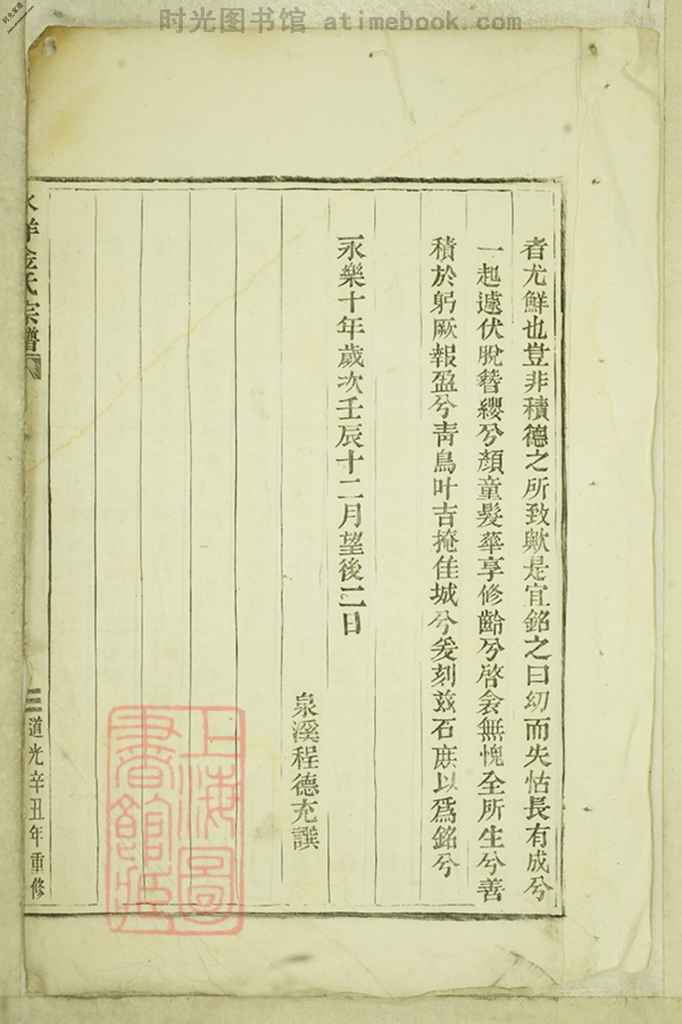 时光图书馆 atimebook.com
者尤鮮也豈非積德之所致歟是宜銘之曰幼而失怙長有成兮
一起遽伏脫簪纓兮顏童髮華享修齡兮啓衾無愧全所生兮善
積於躬厥報盈兮青鳥叶吉掩佳城兮爰刻茲石庶以爲銘兮
永樂十年歲次壬辰十二月望後二日
泉溪程德充譔
金氏宗譜
三
道光辛丑年重修
上海圖
書館藏